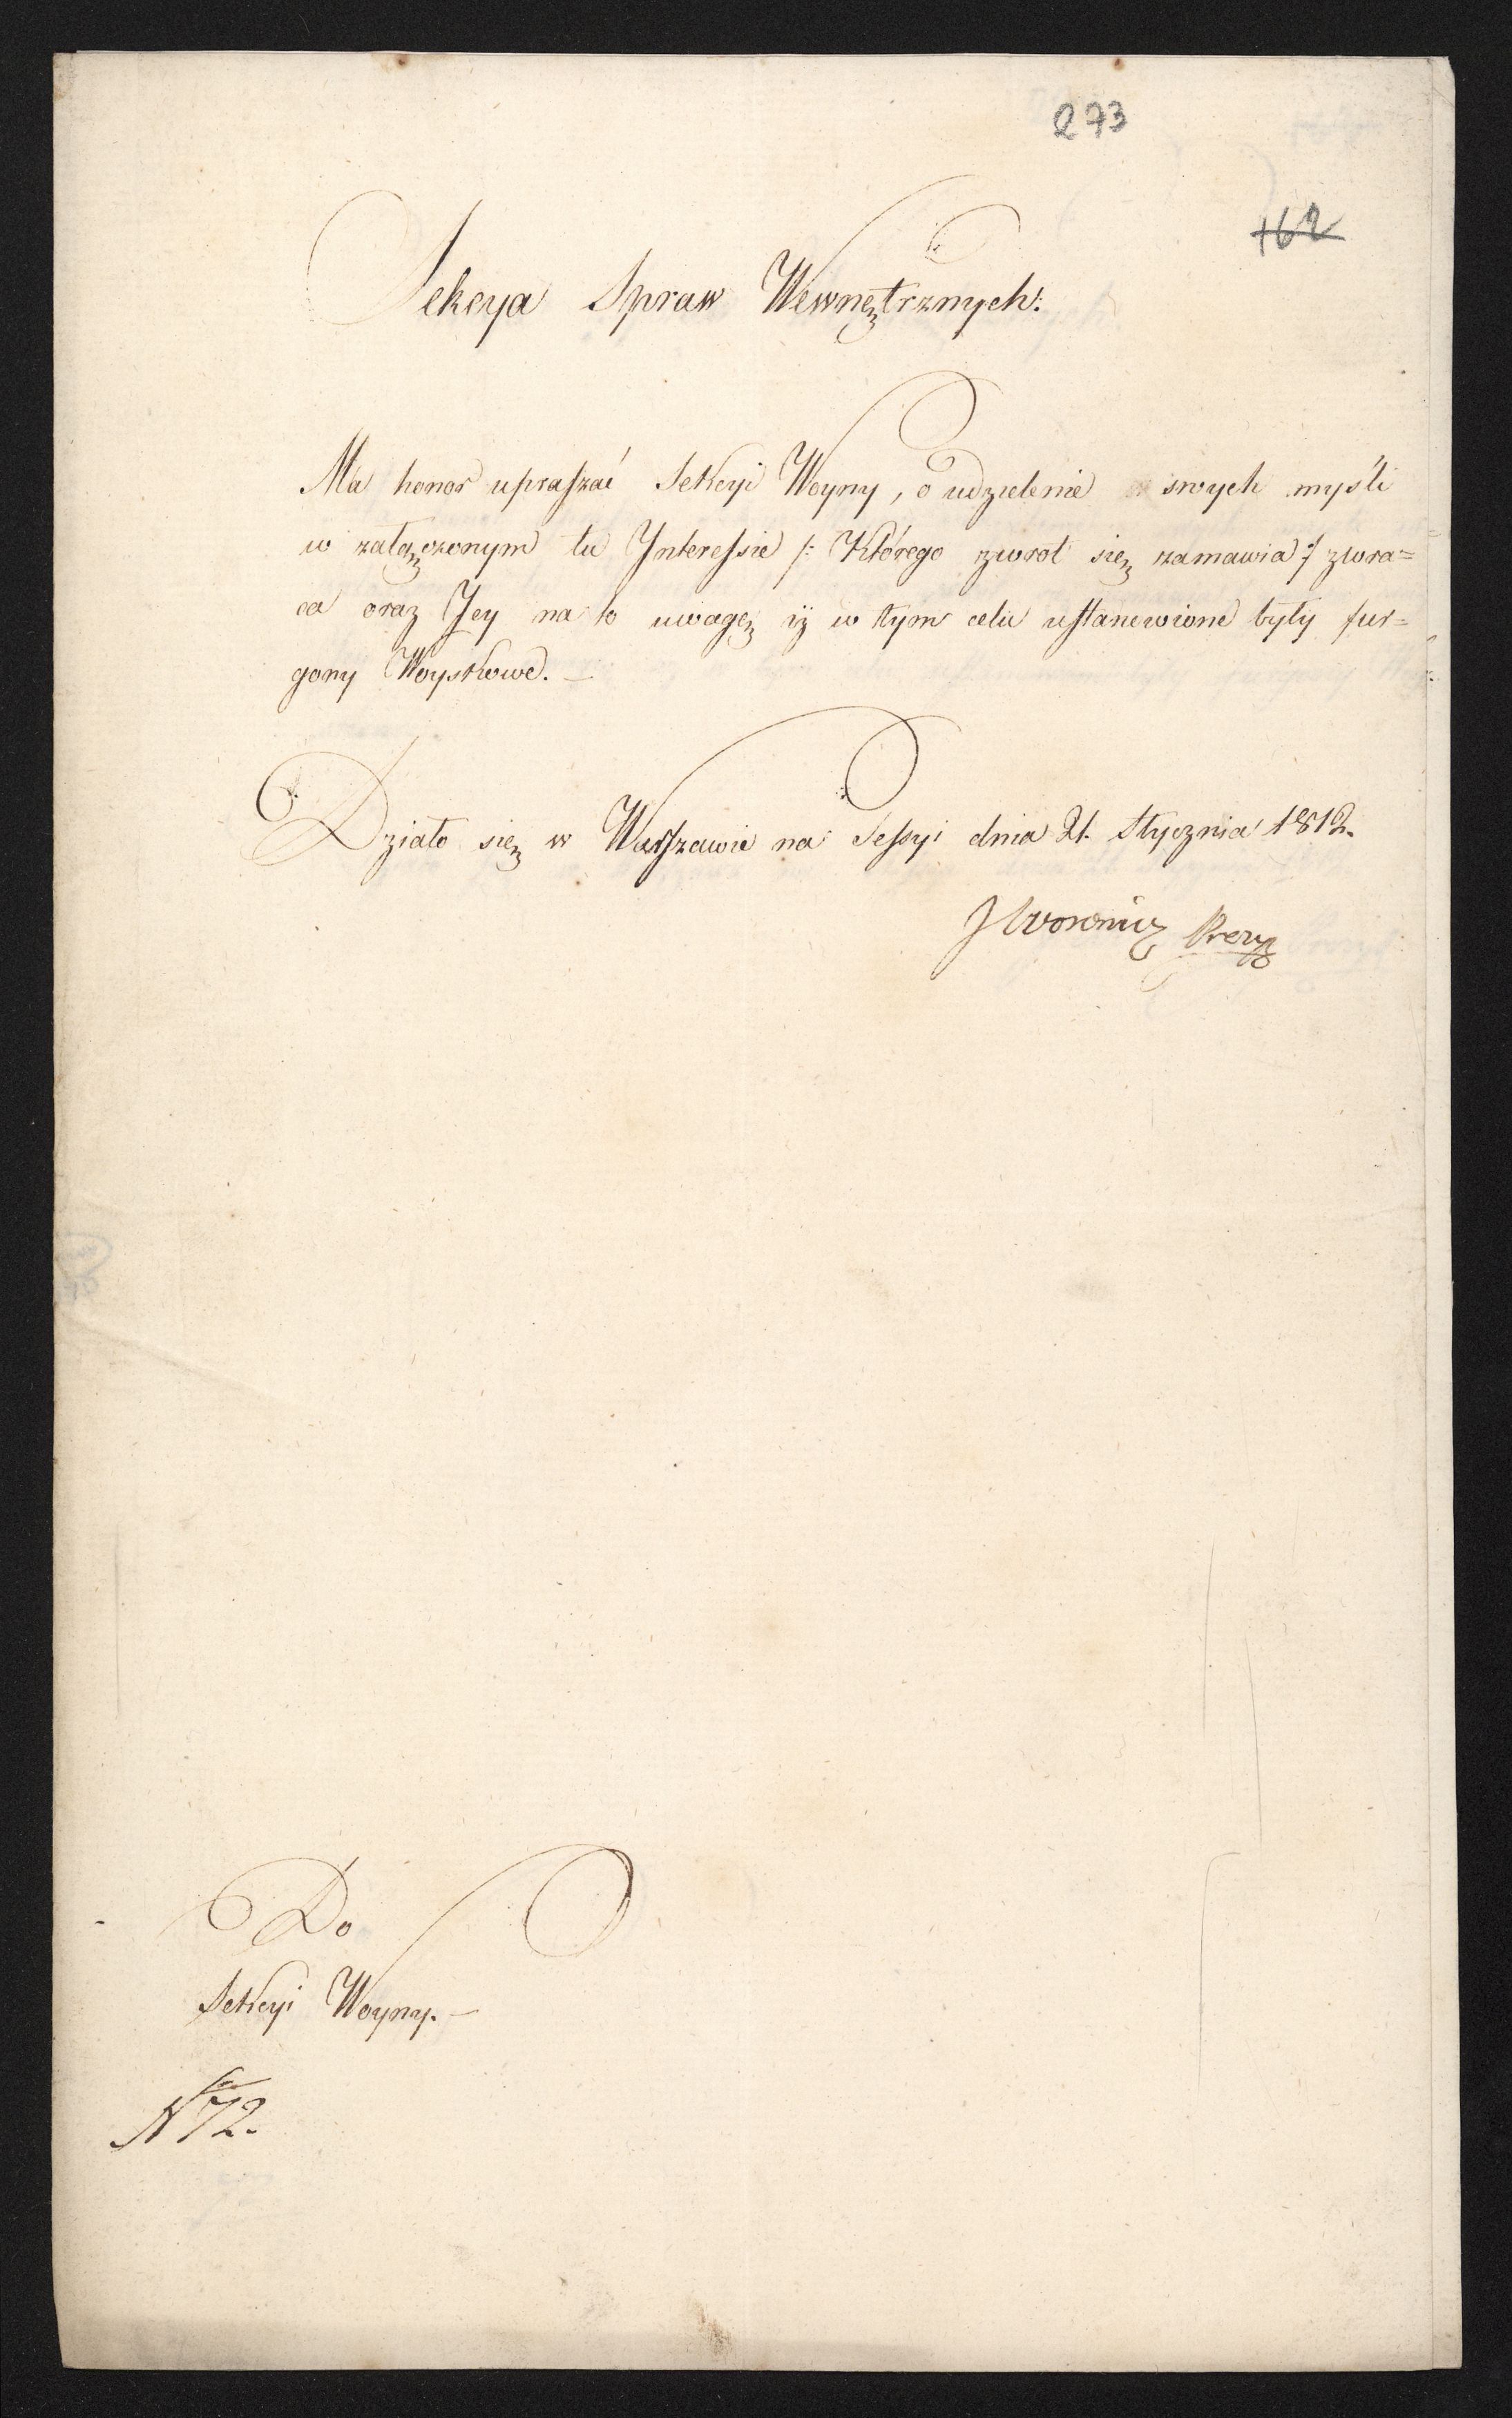 273
162
Sekcya Spraw Wewnętrznych.
Ma honor upraszać Sekcyi Woyny, o udzielenie swych myśli
w załączonym tu Interessie /: Którego zwrot się zamawia :/ zwra=
ca oraz Jey na to uwagę iż w tym celu ustanowione były fur=
gony Woyskowe. –
Działo się w Warszawie na Sessyi dnia 21. Stycznia 1812.
J Woronicz Prezy
Do
Sekcyi Woyny. –
N 72.